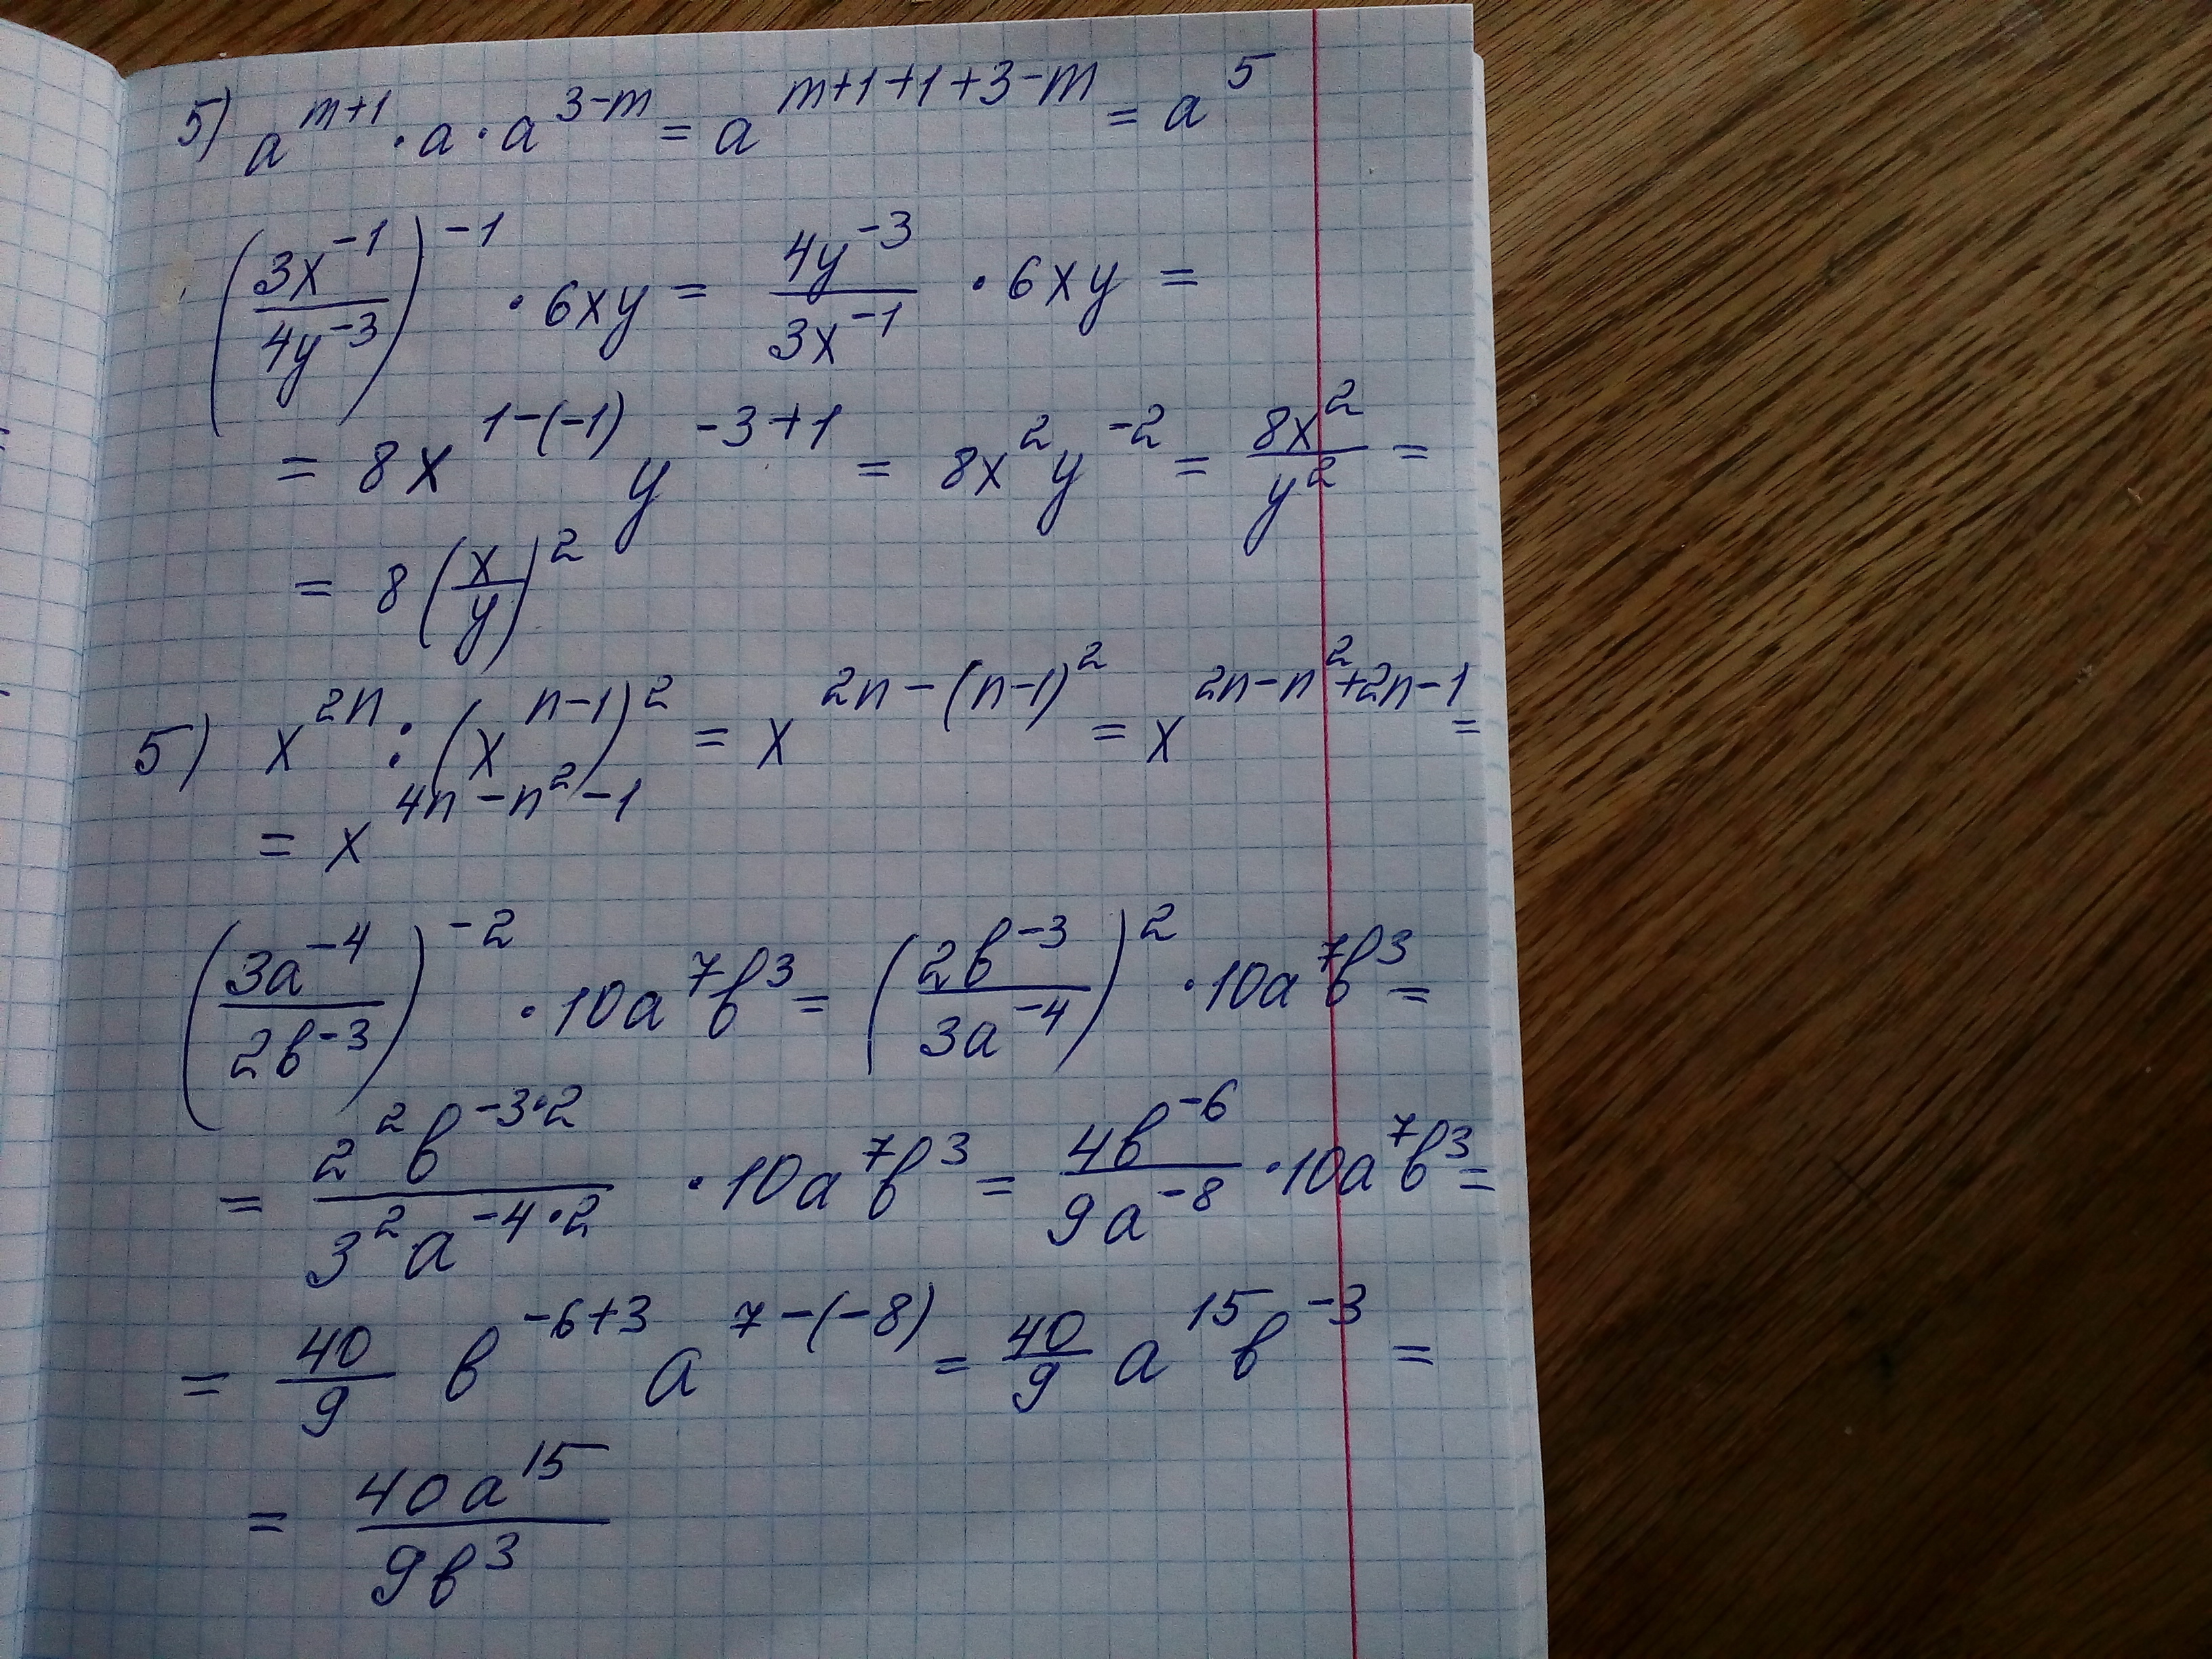 5) a^{m+1} · a · a^{3-m} = a^{m+1+1+3-m} = a^5
(3x^{-1}/4y^{-3})^{-1} · 6xy = 4y^{-3}/3x^{-1} · 6xy =
= 8x^{1-(-1)} y^{-3+1} = 8x^2y^{-2} = 8x^2/y^2 =
= 8(x/y)^2
5) x^{2n} : (x^{n-1})^2 = x^{2n-(n-1)^2} = x^{2n-n^2+2n-1} =
= x^{4n-n^2-1}
(3a^{-4}/2b^{-3})^{-2} · 10a^7b^3 = (2b^{-3}/3a^{-4})^2 · 10a^7b^3 =
= 2^2b^{-3·2}/3^2a^{-4·2} · 10a^7b^3 = 4b^{-6}/9a^{-8} · 10a^7b^3 =
= 40/9 b^{-6+3} a^{7-(-8)} = 40/9 a^{15}b^{-3} =
= 40a^{15}/9b^3